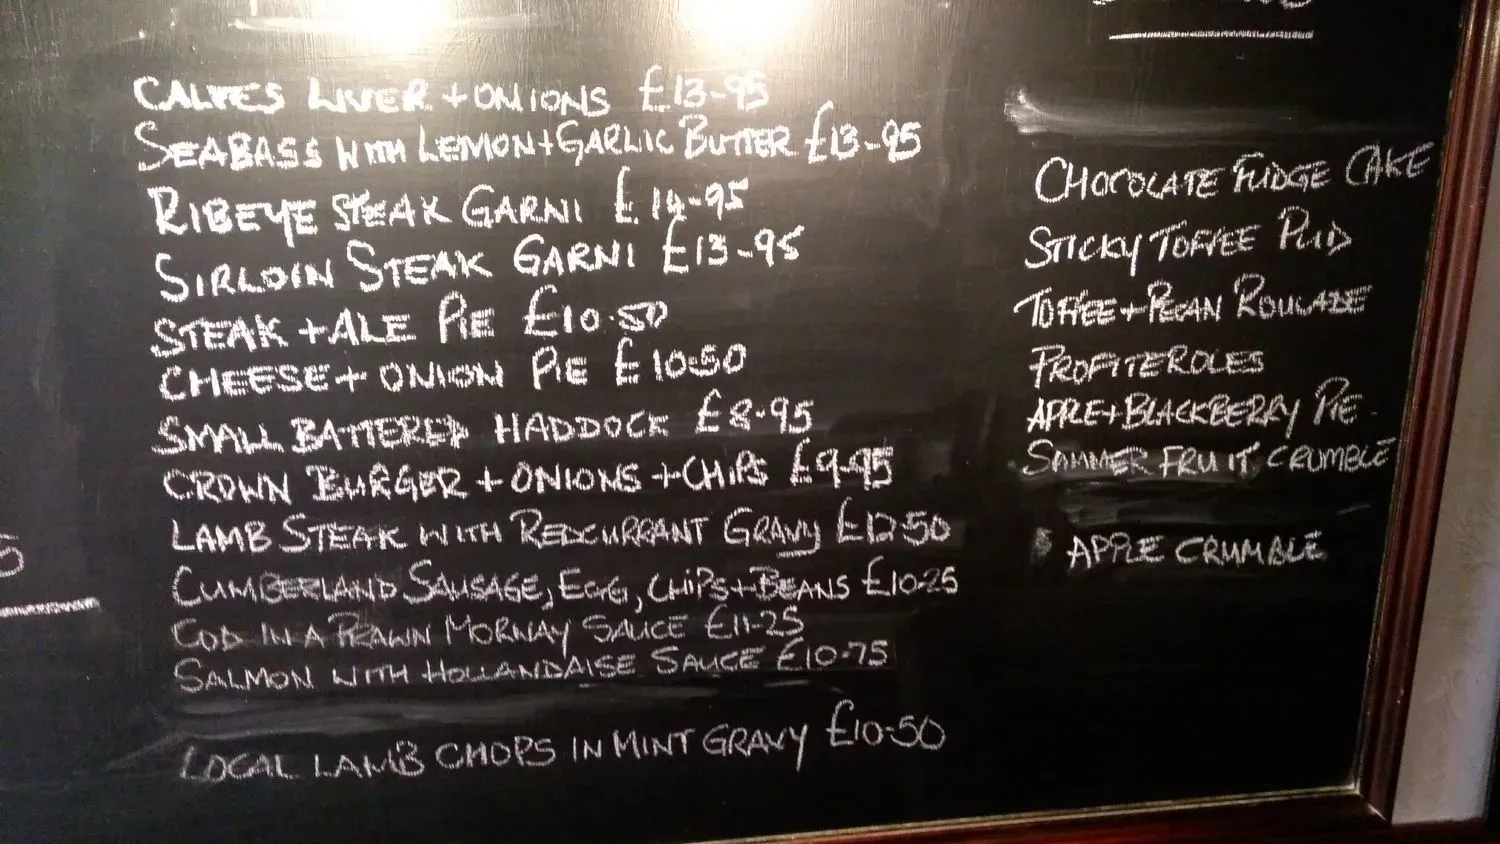 CALVES LIVER + ONIONS £13-95
SEABASS WITH LEMON + GARLIC BUTTER £13-95
RIBEYE STEAK GARNI £14-95
SIRLOIN STEAK GARNI £13-95
STEAK + ALE PIE £10.50
CHEESE + ONION PIE £10.50
SMALL BATTERED HADDOCK £8-95
CROWN BURGER + ONIONS + CHIPS £9-95
LAMB STEAK WITH REDCURRANT GRAVY £12.50
CUMBERLAND SAUSAGE, EGG, CHIPS + BEANS £10-25
COD IN A PRAWN MORNAY SAUCE £11-25
SALMON WITH HOLLANDAISE SAUCE £10-75
LOCAL LAMB CHOPS IN MINT GRAVY £10-50
CHOCOLATE FUDGE CAKE
STICKY TOFFEE PUD
TOFFEE + PECAN ROULADE
PROFITEROLES
APPLE + BLACKBERRY PIE
SUMMER FRUIT CRUMBLE
APPLE CRUMBLE